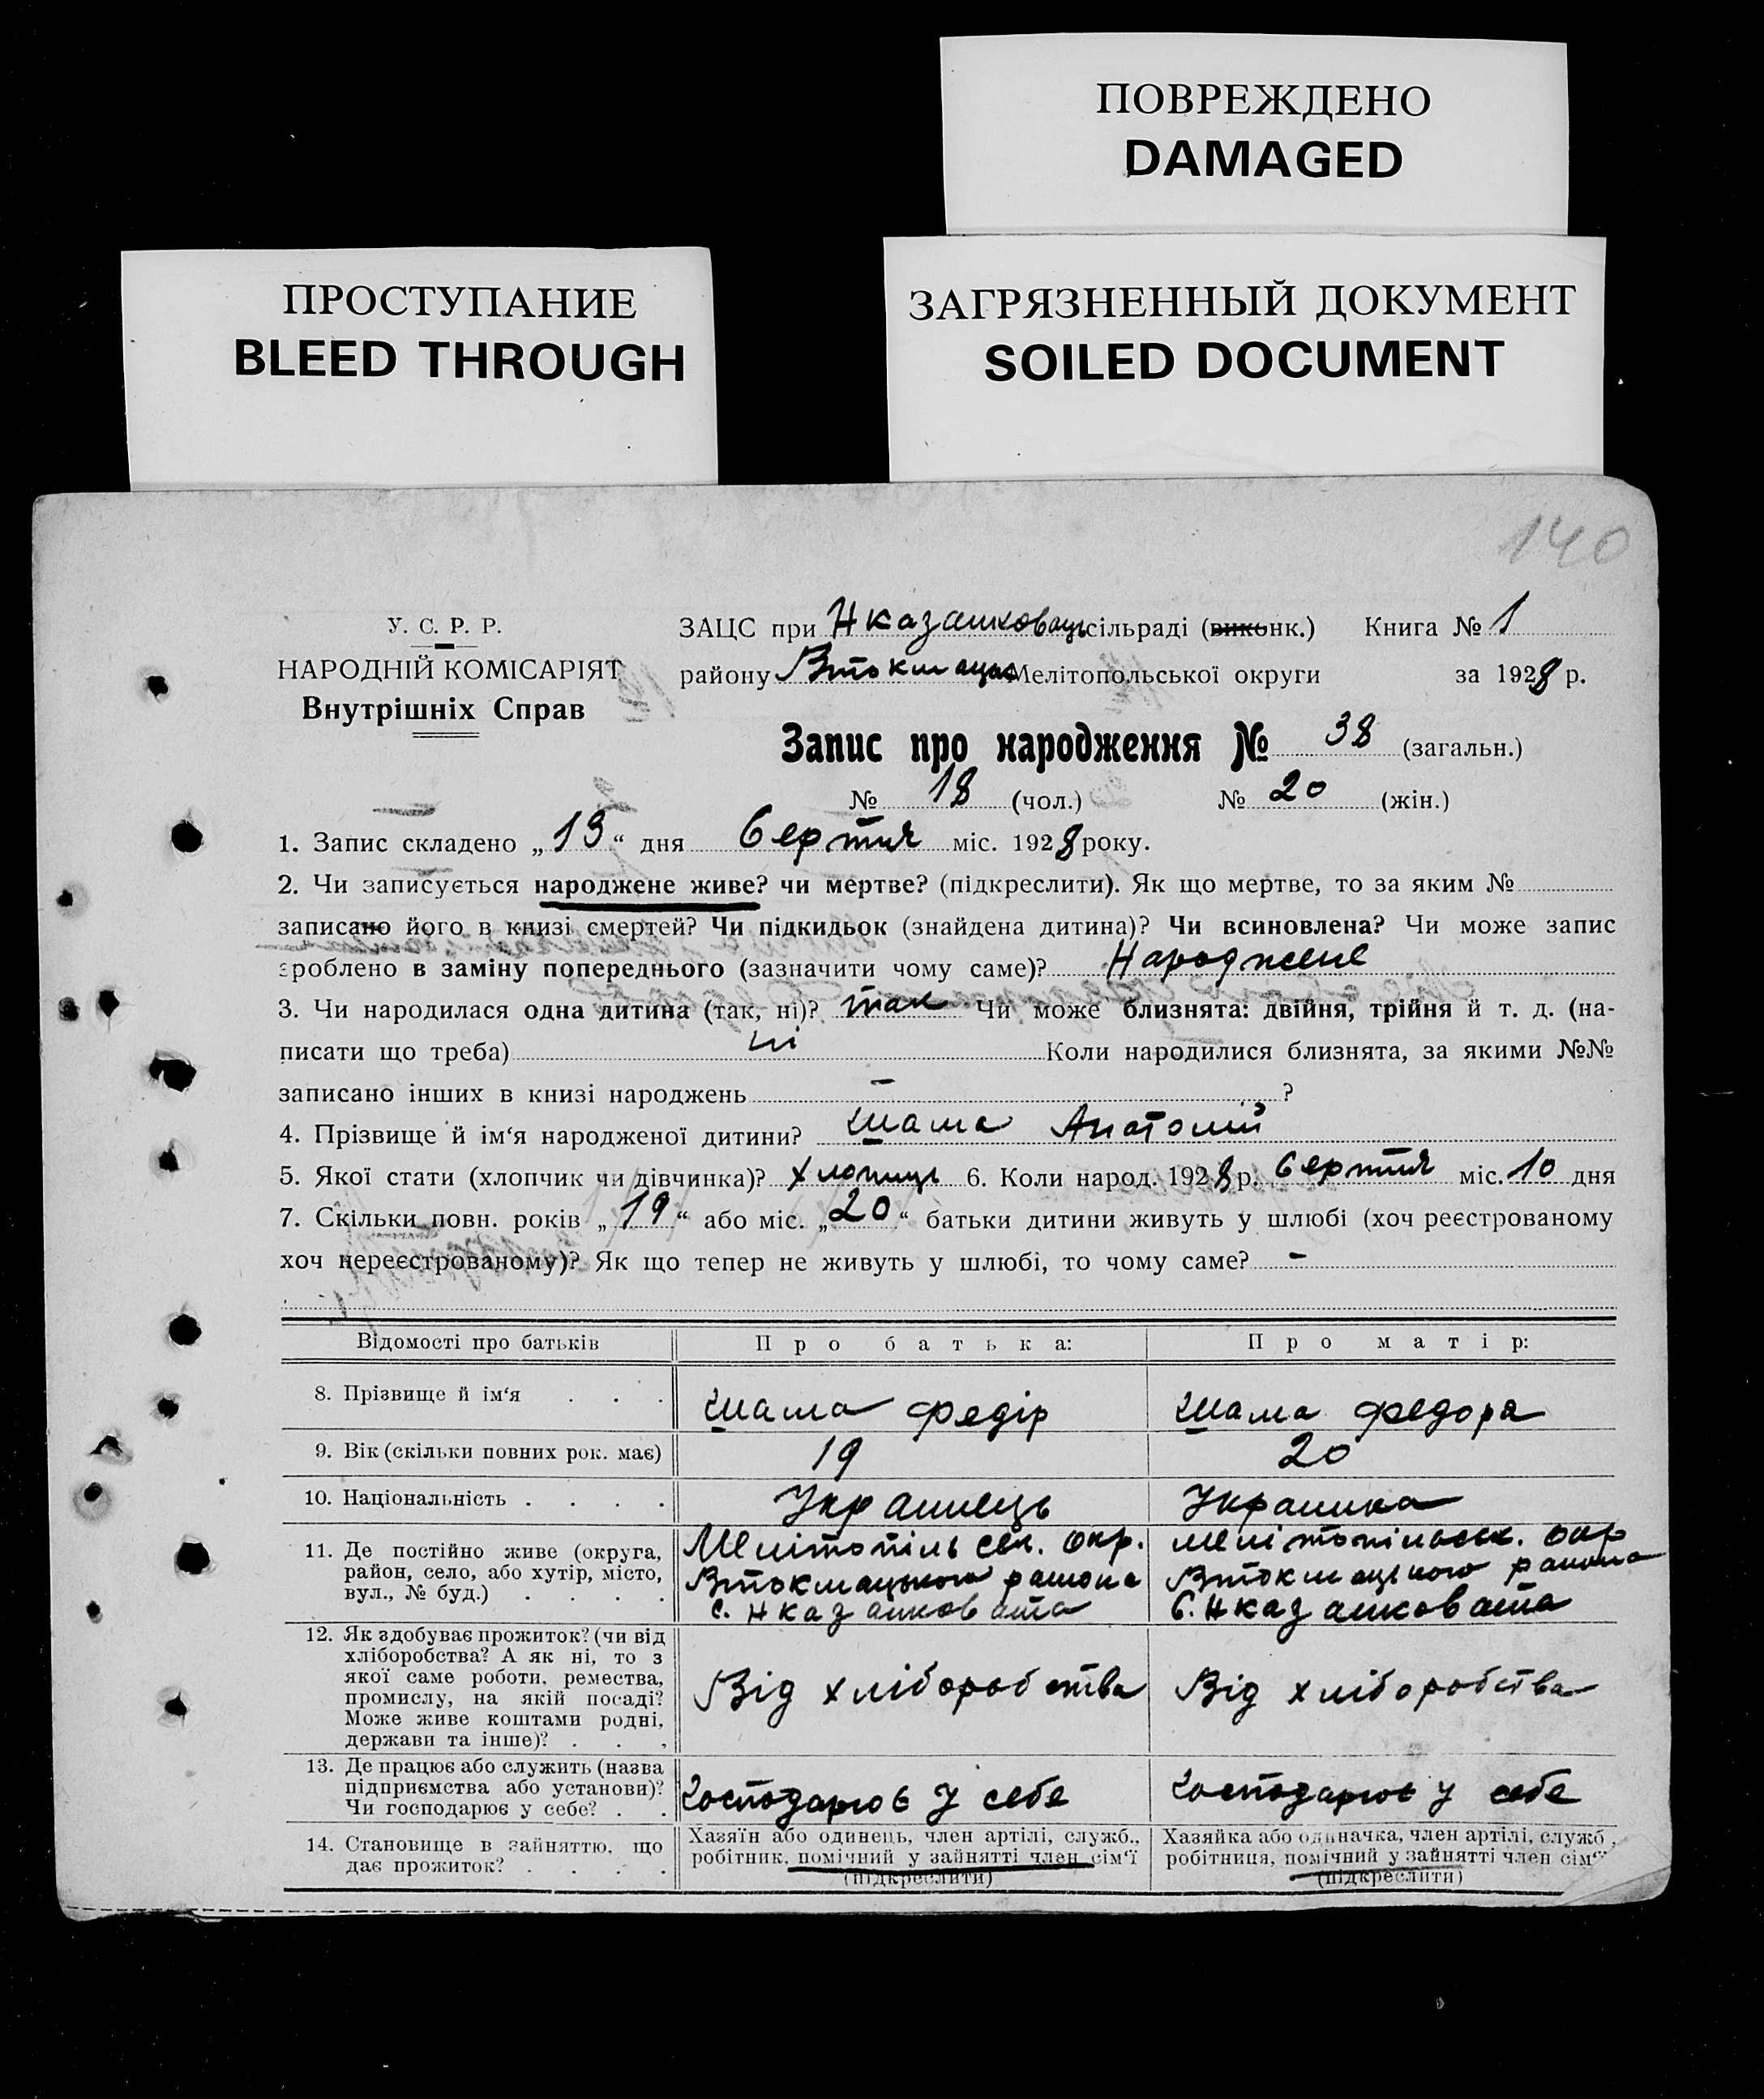 ПОВРЕЖДЕНО
DAMAGED
ПРОСТУПАНИЕ
BLEED THROUGH
ЗАГРЯЗНЕННЫЙ ДОКУМЕНТ
SOILED DOCUMENT
140
У. С. Р. Р.
НАРОДНІЙ КОМІСАРІЯТ
Внутрішніх Справ
ЗАЦС при сільраді (виконк.) Книга № 1
району Втокмацьк Мелітопольської округи за 1928 р.
Запис про народження № 38 (загальн.)
№ 18 (чол.) № 20 (жін.)
1. Запис складено „13“ дня Серпня міс. 1928 року.
2. Чи записується народжене живе? чи мертве? (підкреслити). Як що мертве, то за яким №
записано його в книзі смертей? Чи підкидьок (знайдена дитина)? Чи всиновлена? Чи може запис
зроблено в заміну попереднього (зазначити чому саме)? Народжене
3. Чи народилася одна дитина (так, ні)? так Чи може близнята: двійня, трійня й т. д. (на-
писати що треба) ні Коли народилися близнята, за якими №№
записано інших в книзі народжень — ?
4. Прізвище й ім‘я народженої дитини? Шама Анатолій
5. Якої стати (хлопчик чи дівчинка)? Хлопиць 6. Коли народ. 1928 р. Серпня міс. 10 дня
7. Скільки повн. років „19“ або міс. „20“ батьки дитини живуть у шлюбі (хоч реєстрованому
хоч нереєстрованому)? Як що тепер не живуть у шлюбі, то чому саме? —
Відомості про батьків Про батька: Про матір:
8. Прізвище й ім‘я . . . Шама Федір Шама Федора
9. Вік (скільки повних рок. має) 19 20
10. Національність . . . . Украинець Украинка
11. Де постійно живе (округа,
район, село, або хутір, місто,
вул., № буд.) . . . .
Мелітопільсек. Окр.
Втокмацького района
с. Нказанковата
Мелітопільськ. Окр
Втокмацького района
С. Нказанковата
12. Як здобуває прожиток? (чи від
хліборобства? А як ні, то з
якої саме роботи, ремества,
промислу, на якій посаді?
Може живе коштами родні,
держави та інше)? . . .
Від хліборобства
Від хліборобства
13. Де працює або служить (назва
підприємства або установи)?
Чи господарює у себе? . .
Господарює У себе
Господарює У себе
14. Становище в зайняттю, що
дає прожиток? . . . .
Хазяїн або одинець, член артілі, служб.,
робітник, помічний у зайнятті член сім‘ї
(підкреслити)
Хазяйка або одиначка, член артілі, служб.,
робітниця, помічний у зайнятті член сім‘ї
(підкреслити)